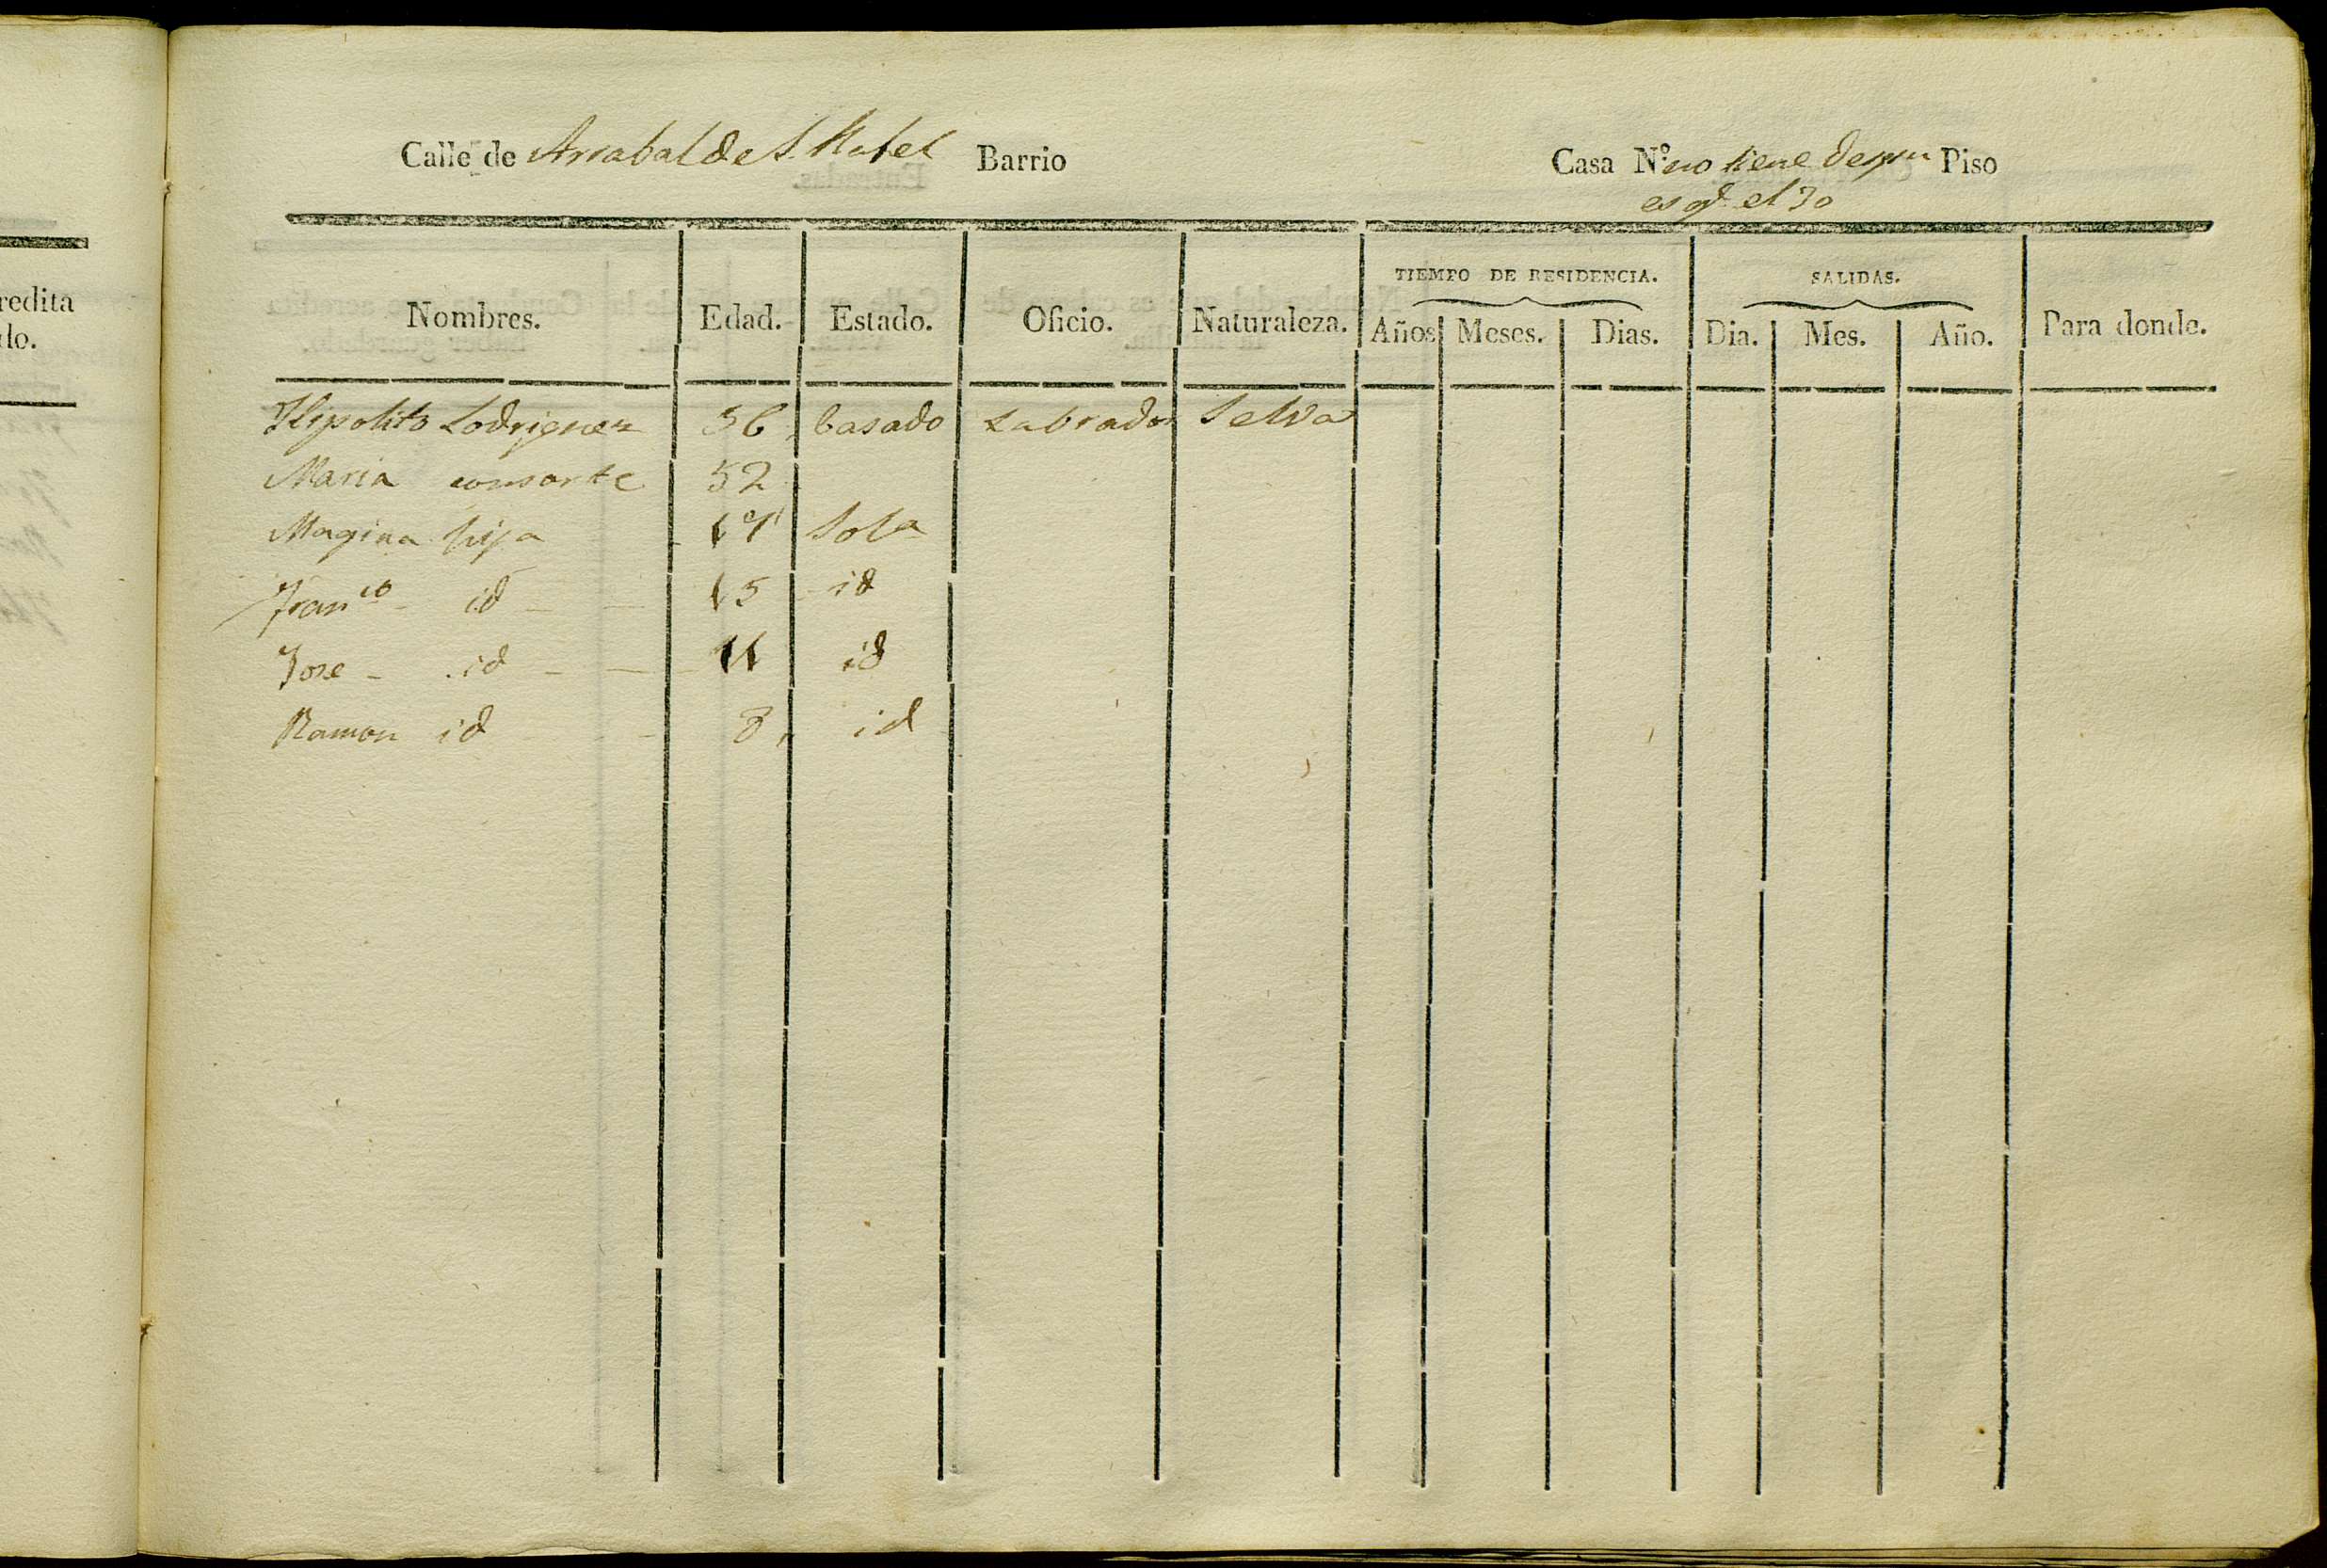 redita
do.
Calle de Arrabal de S. Rafel Barrio Casa N.º no tiene Piso
es qe el 30
TIEMPO DE RESIDENCIA. SALIDAS.
Nombres. Edad. Estado. Oficio. Naturaleza. Años Meses. Dias. Dia. Mes. Año. Para donde.
Hipolito Rodriguez 56 Casado Labrador Selva
Maria consorte 52
Magina hija 17 Sola
Franco id 15 id
Jose id 11 id
Ramon id 8 id